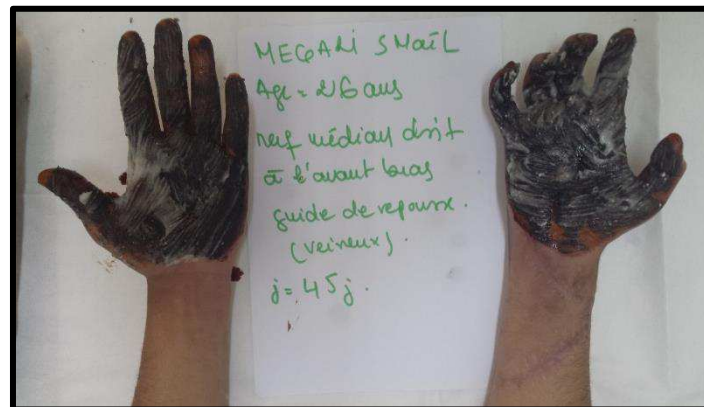 MEGARI SMAÏL
Age = 26 ans
nerf médian droit
à l'avant bras
guide de repousse.
(veineux).
j = 45 j.